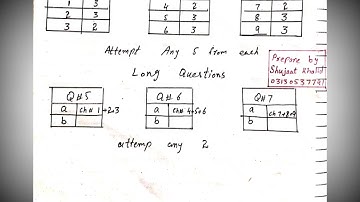 1 3
2 3
3 2
4 2
5 3
6 3
7 2
8 3
9 3
Attempt Any 5 from each
Prepare by
Shujaat Khalid
Long Questions
Q#5
a ch# 1+2+3
b
Q#6
a ch# 4+5+6
b
Q#7
a ch 7+8+9
b
attemp any 2